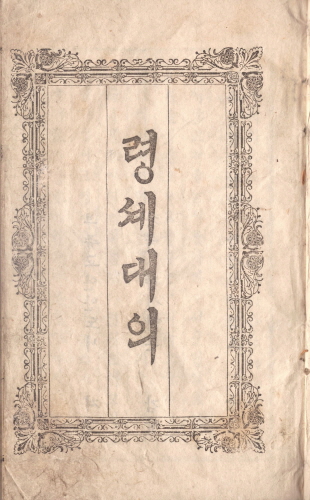 령셰대의